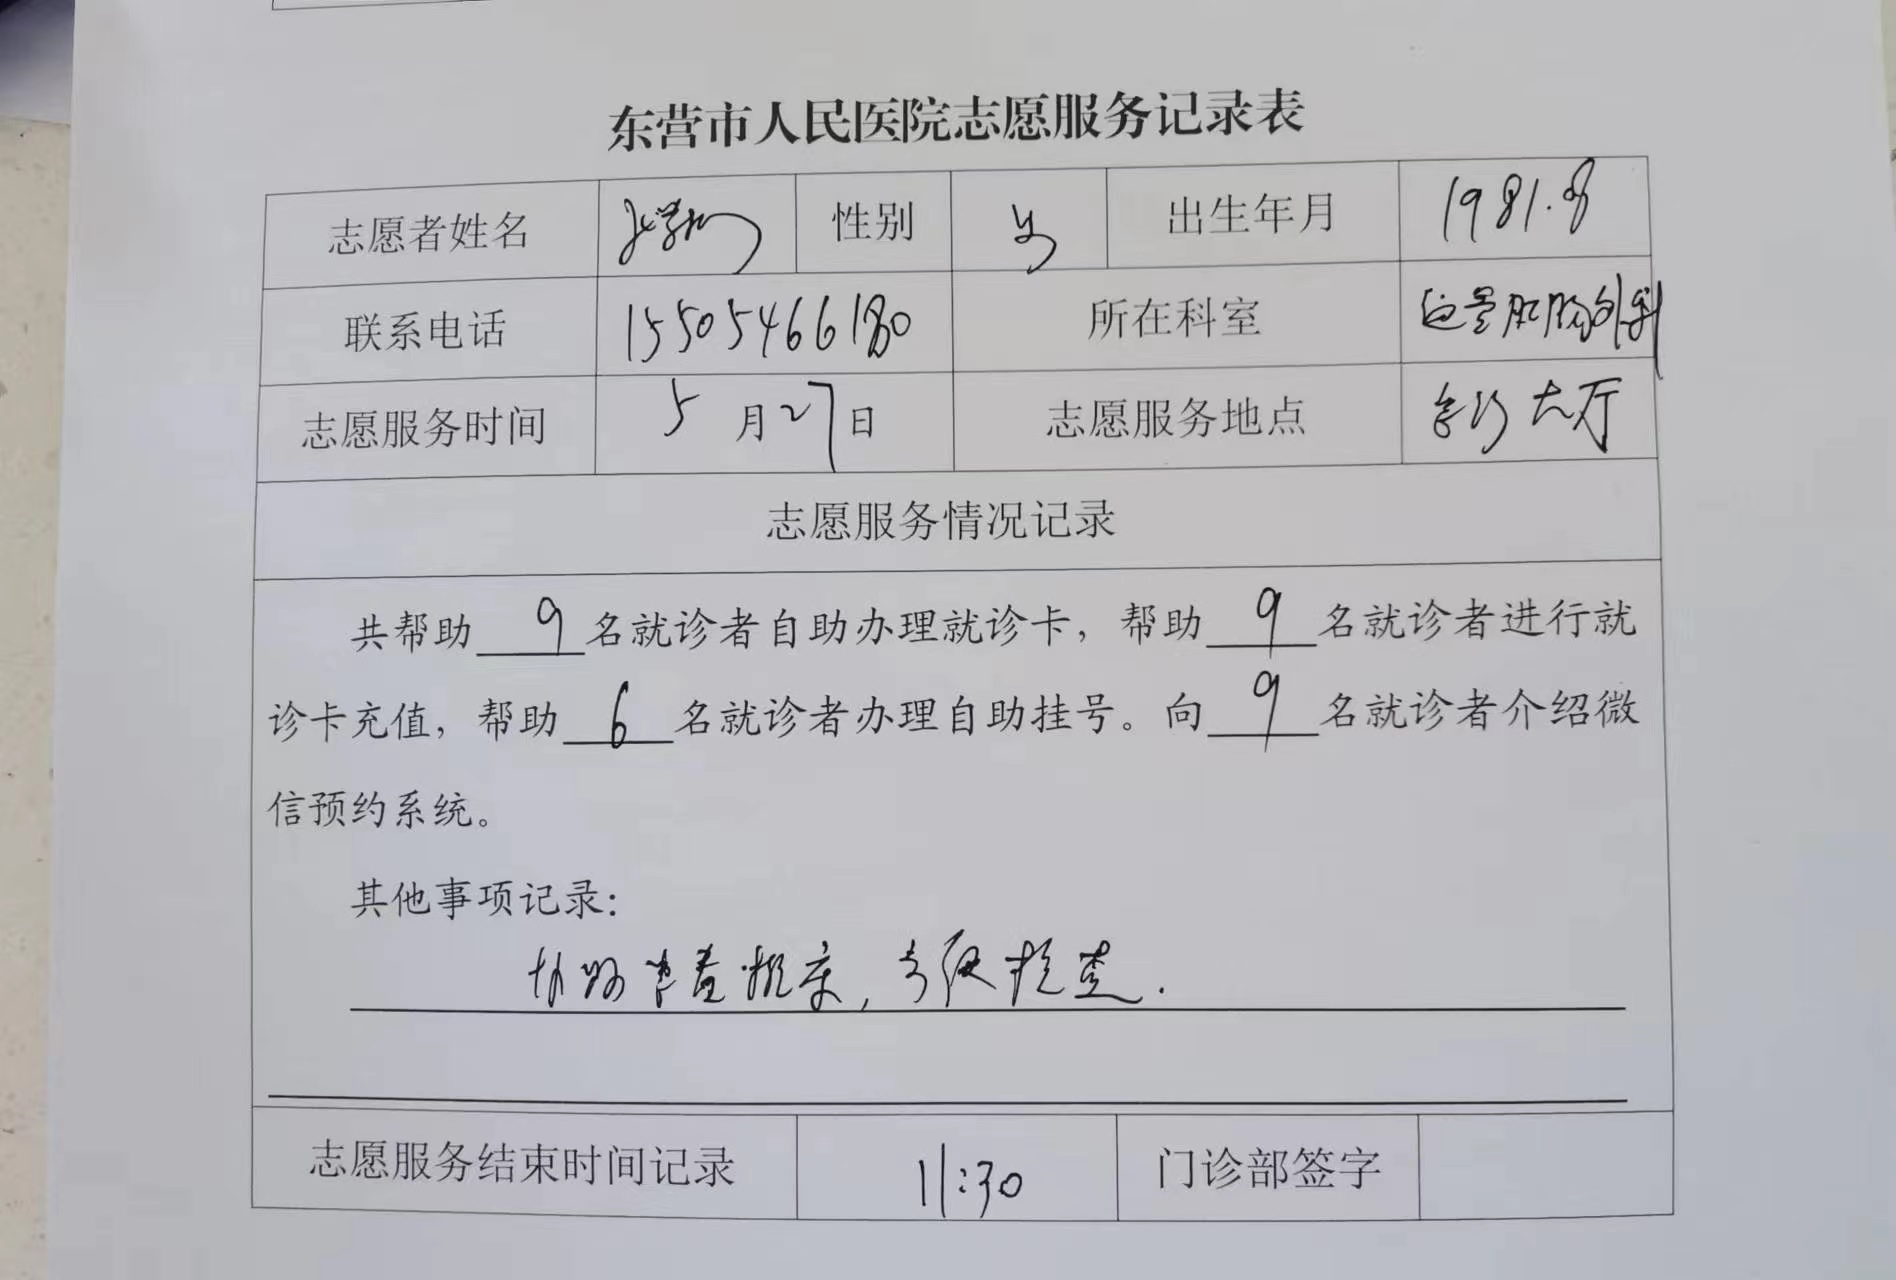 东营市人民医院志愿服务记录表
志愿者姓名 性别 男 出生年月 1981.8
联系电话 15505466180 所在科室 胃肠外科
志愿服务时间 5月27日 志愿服务地点 门诊大厅
志愿服务情况记录
共帮助9名就诊者自助办理就诊卡，帮助9名就诊者进行就
诊卡充值，帮助6名就诊者办理自助挂号。向9名就诊者介绍微
信预约系统。
其他事项记录：
协助患者推床，方便检查.
志愿服务结束时间记录 11:30 门诊部签字